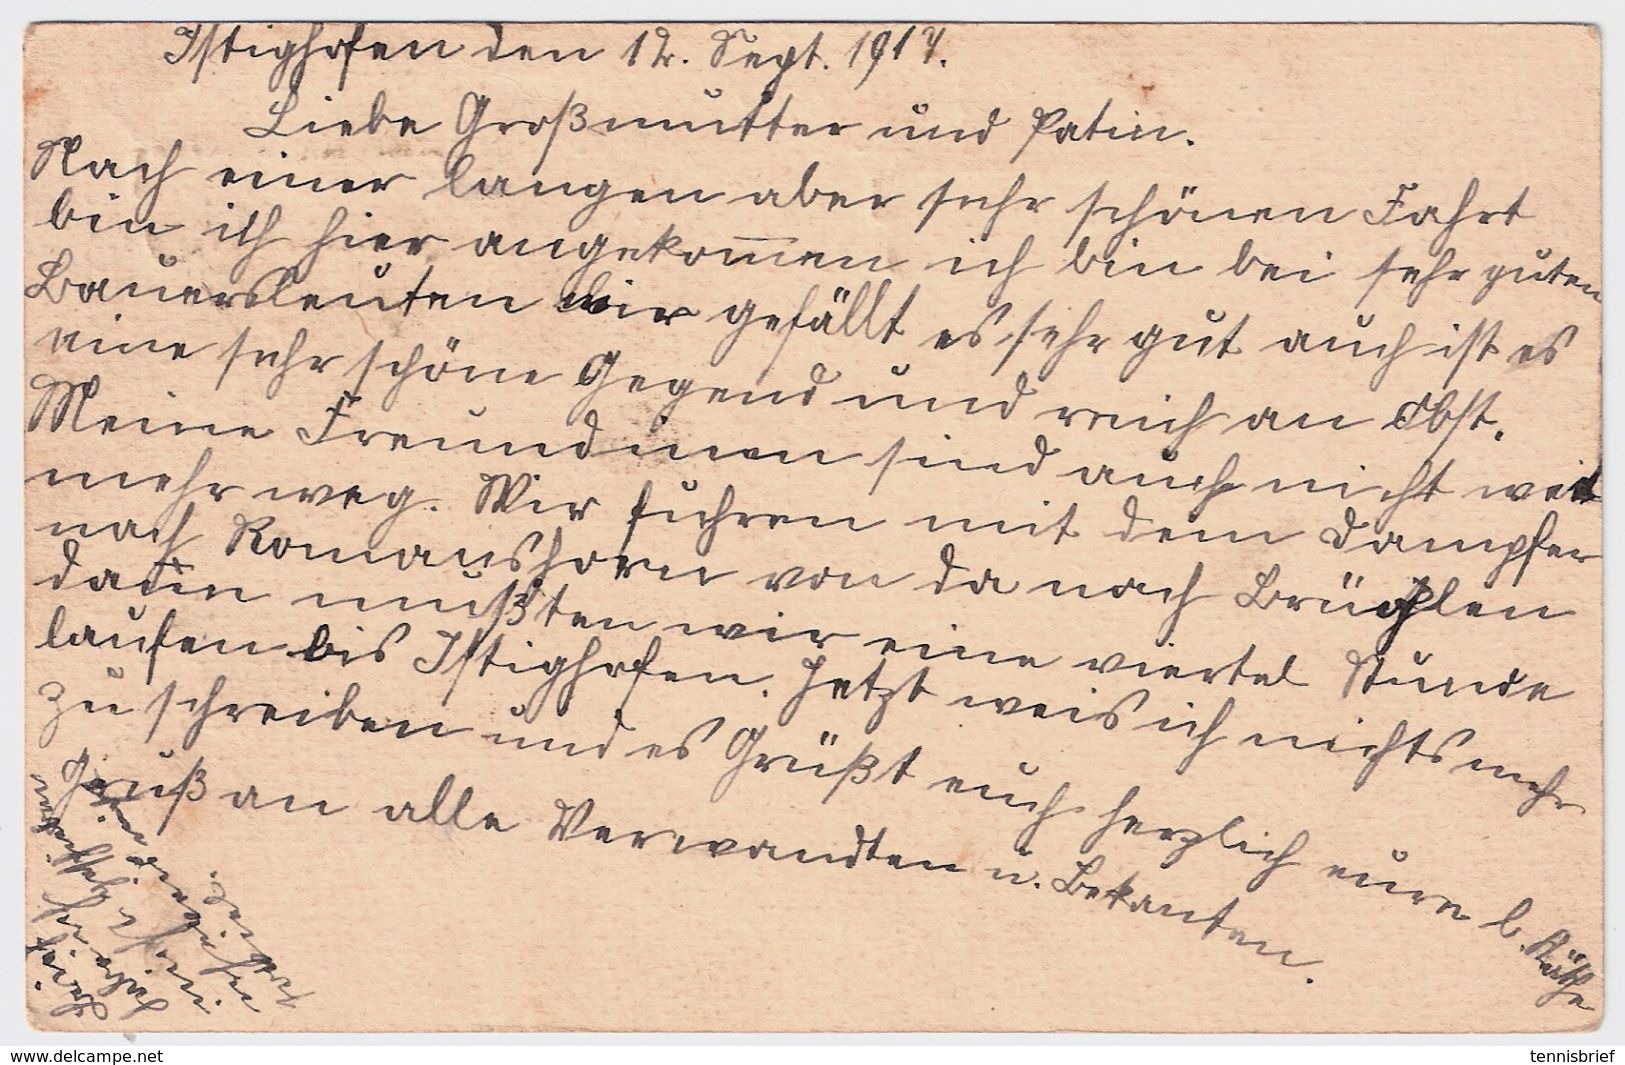 Istighofen den 12. Sept. 1917.
Liebe Großmutter und Patin.
Nach einer langen aber sehr schönen Fahrt
bin ich hier angekom̅en ich bin bei sehr guten
Bauersleuten mir gefällt es sehr gut auch ist es
eine sehr schöne Gegend und reich an Obst.
Meine Freundinen sind auch nicht weit
mehr weg. Wir fuhren mit dem Dampfer
nach Romanshorn von da nach Bürglen
dan̅ mußten wir eine viertel Stunde
laufen bis Istighofen. Jetzt weis ich nichts mehr
zu schreiben und es Grüßt euch herzlich eure l. Käthe
Gruß an alle Verwandten u. Bekanten.
www.delcampe.net
tennisbrief